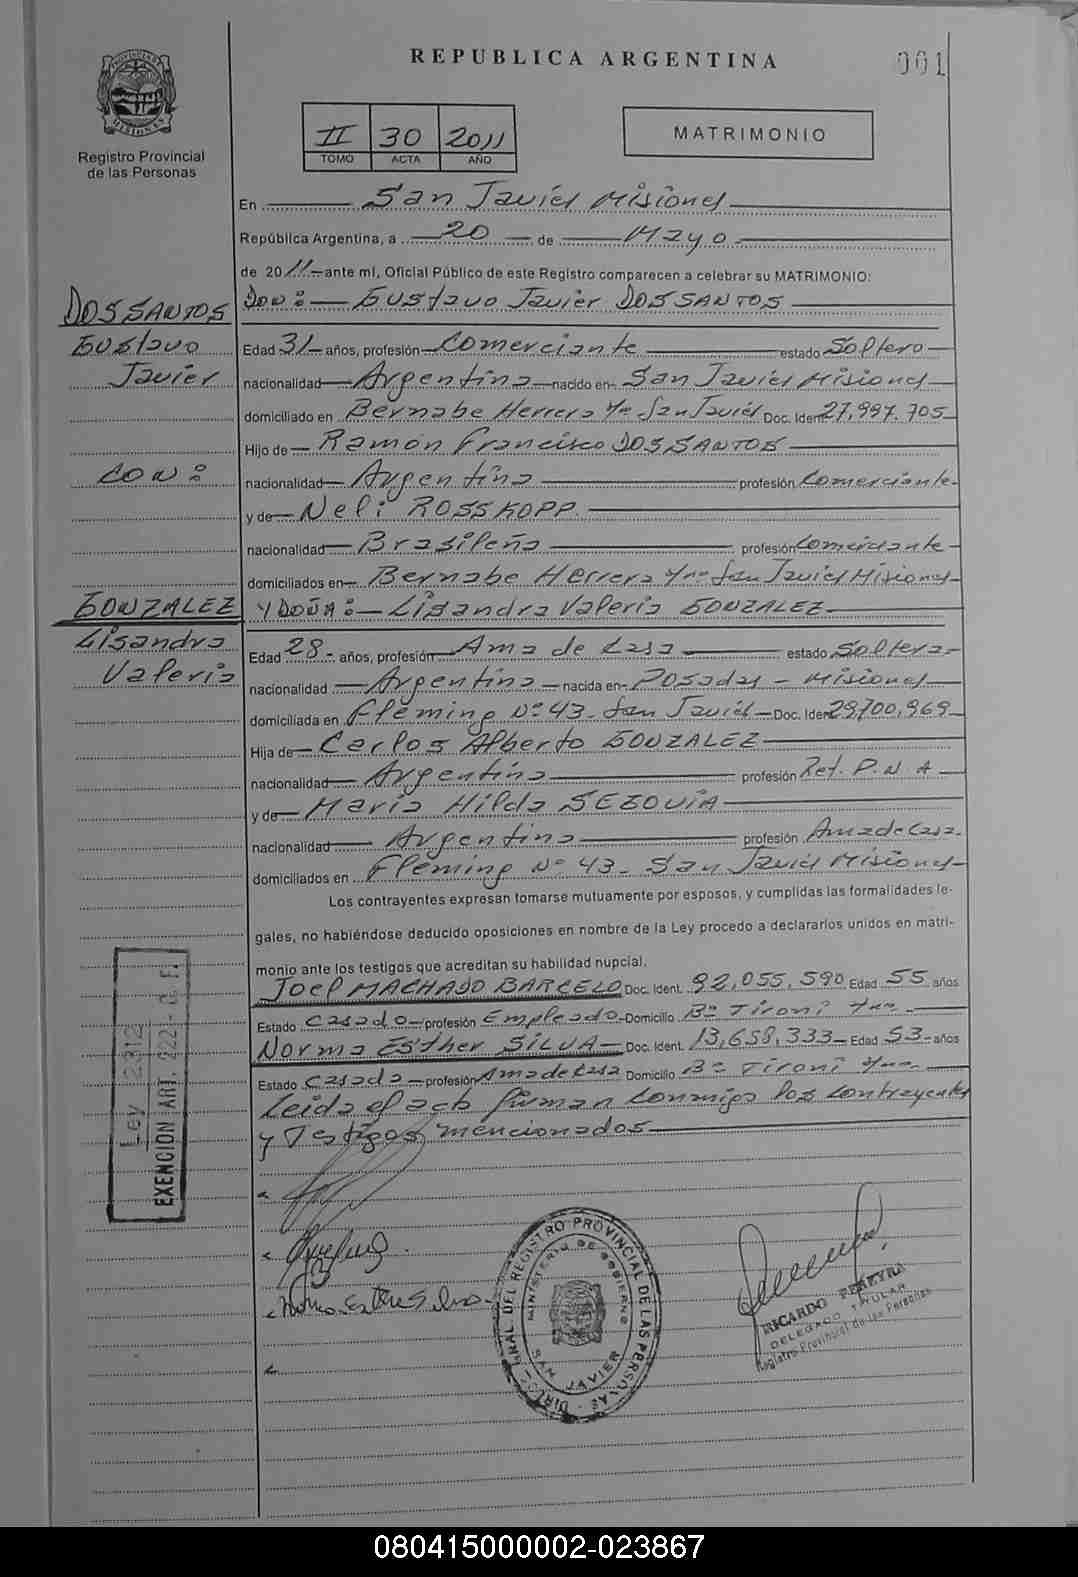 REPUBLICA ARGENTINA
001
PROVINCIA DE MISIONES
Registro Provincial
de las Personas
II 30 2011
TOMO ACTA AÑO
MATRIMONIO
En San Javier Misiones
República Argentina, a 20 de Mayo
de 2011 ante mí, Oficial Público de este Registro comparecen a celebrar su MATRIMONIO:
DOS SANTOS
Gustavo
Javier
CON:
GONZALEZ
Lisandra
Valeria
Don: Gustavo Javier DOS SANTOS
Edad 31 años, profesión Comerciante estado Soltero
nacionalidad Argentina nacido en San Javier Misiones
domiciliado en Bernabe Herrera San Javier Doc. Ident. 27,997.705
Hijo de Ramón Francisco DOS SANTOS
nacionalidad Argentina profesión Comerciante
y de Neli ROSSKOPP.
nacionalidad Brasileña profesión Comerciante
domiciliados en Bernabe Herrera San Javier Misiones
Y DOÑA: Lisandra Valeria GONZALEZ
Edad 28 años, profesión Ama de Casa estado Soltera
nacionalidad Argentina nacida en Posadas - Misiones
domiciliada en Fleming Nº 43 - San Javier Doc. Ident. 29,700,969
Hija de Carlos Alberto GONZALEZ
nacionalidad Argentina profesión Ret. P.N.A
y de Maria Hilda SEGOVIA
nacionalidad Argentina profesión Ama de Casa
domiciliados en Fleming Nº 43 - San Javier Misiones
Los contrayentes expresan tomarse mutuamente por esposos, y cumplidas las formalidades le-
gales, no habiéndose deducido oposiciones en nombre de la Ley procedo a declararlos unidos en matri-
monio ante los testigos que acreditan su habilidad nupcial.
Joel MACHADO BARCELO Doc. Ident. 92,055,590 Edad 55 años
Estado Casado profesión Empleado Domicilio Bº Tironi
Norma Esther SILVA Doc. Ident. 13,658,333 Edad 53 años
Estado Casada profesión Ama de Casa Domicilio Bº Tironi
Leida el acta firman conmigo los contrayentes
y Testigos mencionados
Ley 2312
EXENCION ART. 222 - C.F.
Norma Esther Silva
REGISTRO PROVINCIAL DE LAS PERSONAS
MINISTERIO DE GOBIERNO
SAN JAVIER
RICARDO PEREYRA
DELEGADO TITULAR
Registro Provincial de las Personas
080415000002-023867